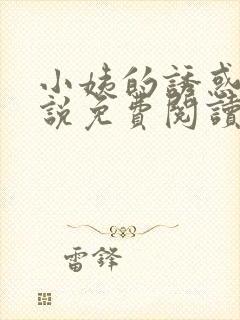 小姨的誘惑
說免費閱讀
雷鋒